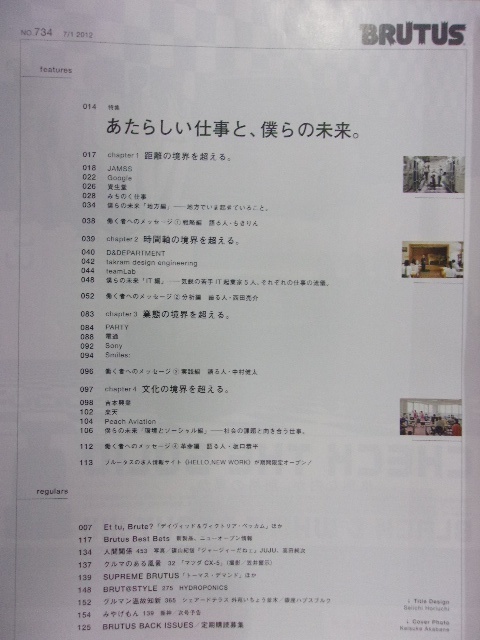 NO.734 7/1 2012
BRUTUS
features
014 特集
あたらしい仕事と、僕らの未来。
017 chapter 1 距離の境界を超える。
018 JAMSS
022 Google
026 資生堂
028 みちのく仕事
034 僕らの未来「地方編」——地方でいま起きていること。
038 働く者へのメッセージ① 戦略編 語る人・ちきりん
039 chapter 2 時間軸の境界を超える。
040 D&DEPARTMENT
042 takram design engineering
044 teamLab
048 僕らの未来「IT編」——気鋭の若手IT起業家5人、それぞれの仕事の流儀。
052 働く者へのメッセージ② 分析編 語る人・西田亮介
083 chapter 3 業態の境界を超える。
084 PARTY
088 電通
092 Sony
094 Smiles:
096 働く者へのメッセージ③ 実践編 語る人・中村健太
097 chapter 4 文化の境界を超える。
098 吉本興業
102 楽天
104 Peach Aviation
106 僕らの未来「環境とソーシャル編」——社会の課題と向き合う仕事。
112 働く者へのメッセージ④ 革命編 語る人・坂口恭平
113 ブルータスの求人情報サイト《HELLO, NEW WORK》が期間限定オープン!
regulars
007 Et tu, Brute?「デイヴィッド&ヴィクトリア・ベッカム」ほか
117 Brutus Best Bets 新製品、ニューオープン情報
134 人間関係 453 写真/
137 クルマのある風景 32 「マツダ CX-5」
139 SUPREME BRUTUS「トーマス・デマンド」ほか
148 BRUT@STYLE 275 HYDROPONICS
152 グルマン温故知新 365
154 みやげもん 139
125 BRUTUS BACK ISSUES/定期購読募集
Title Design
Seiichi Horiuchi
Cover Photo
Keisuke Akabane